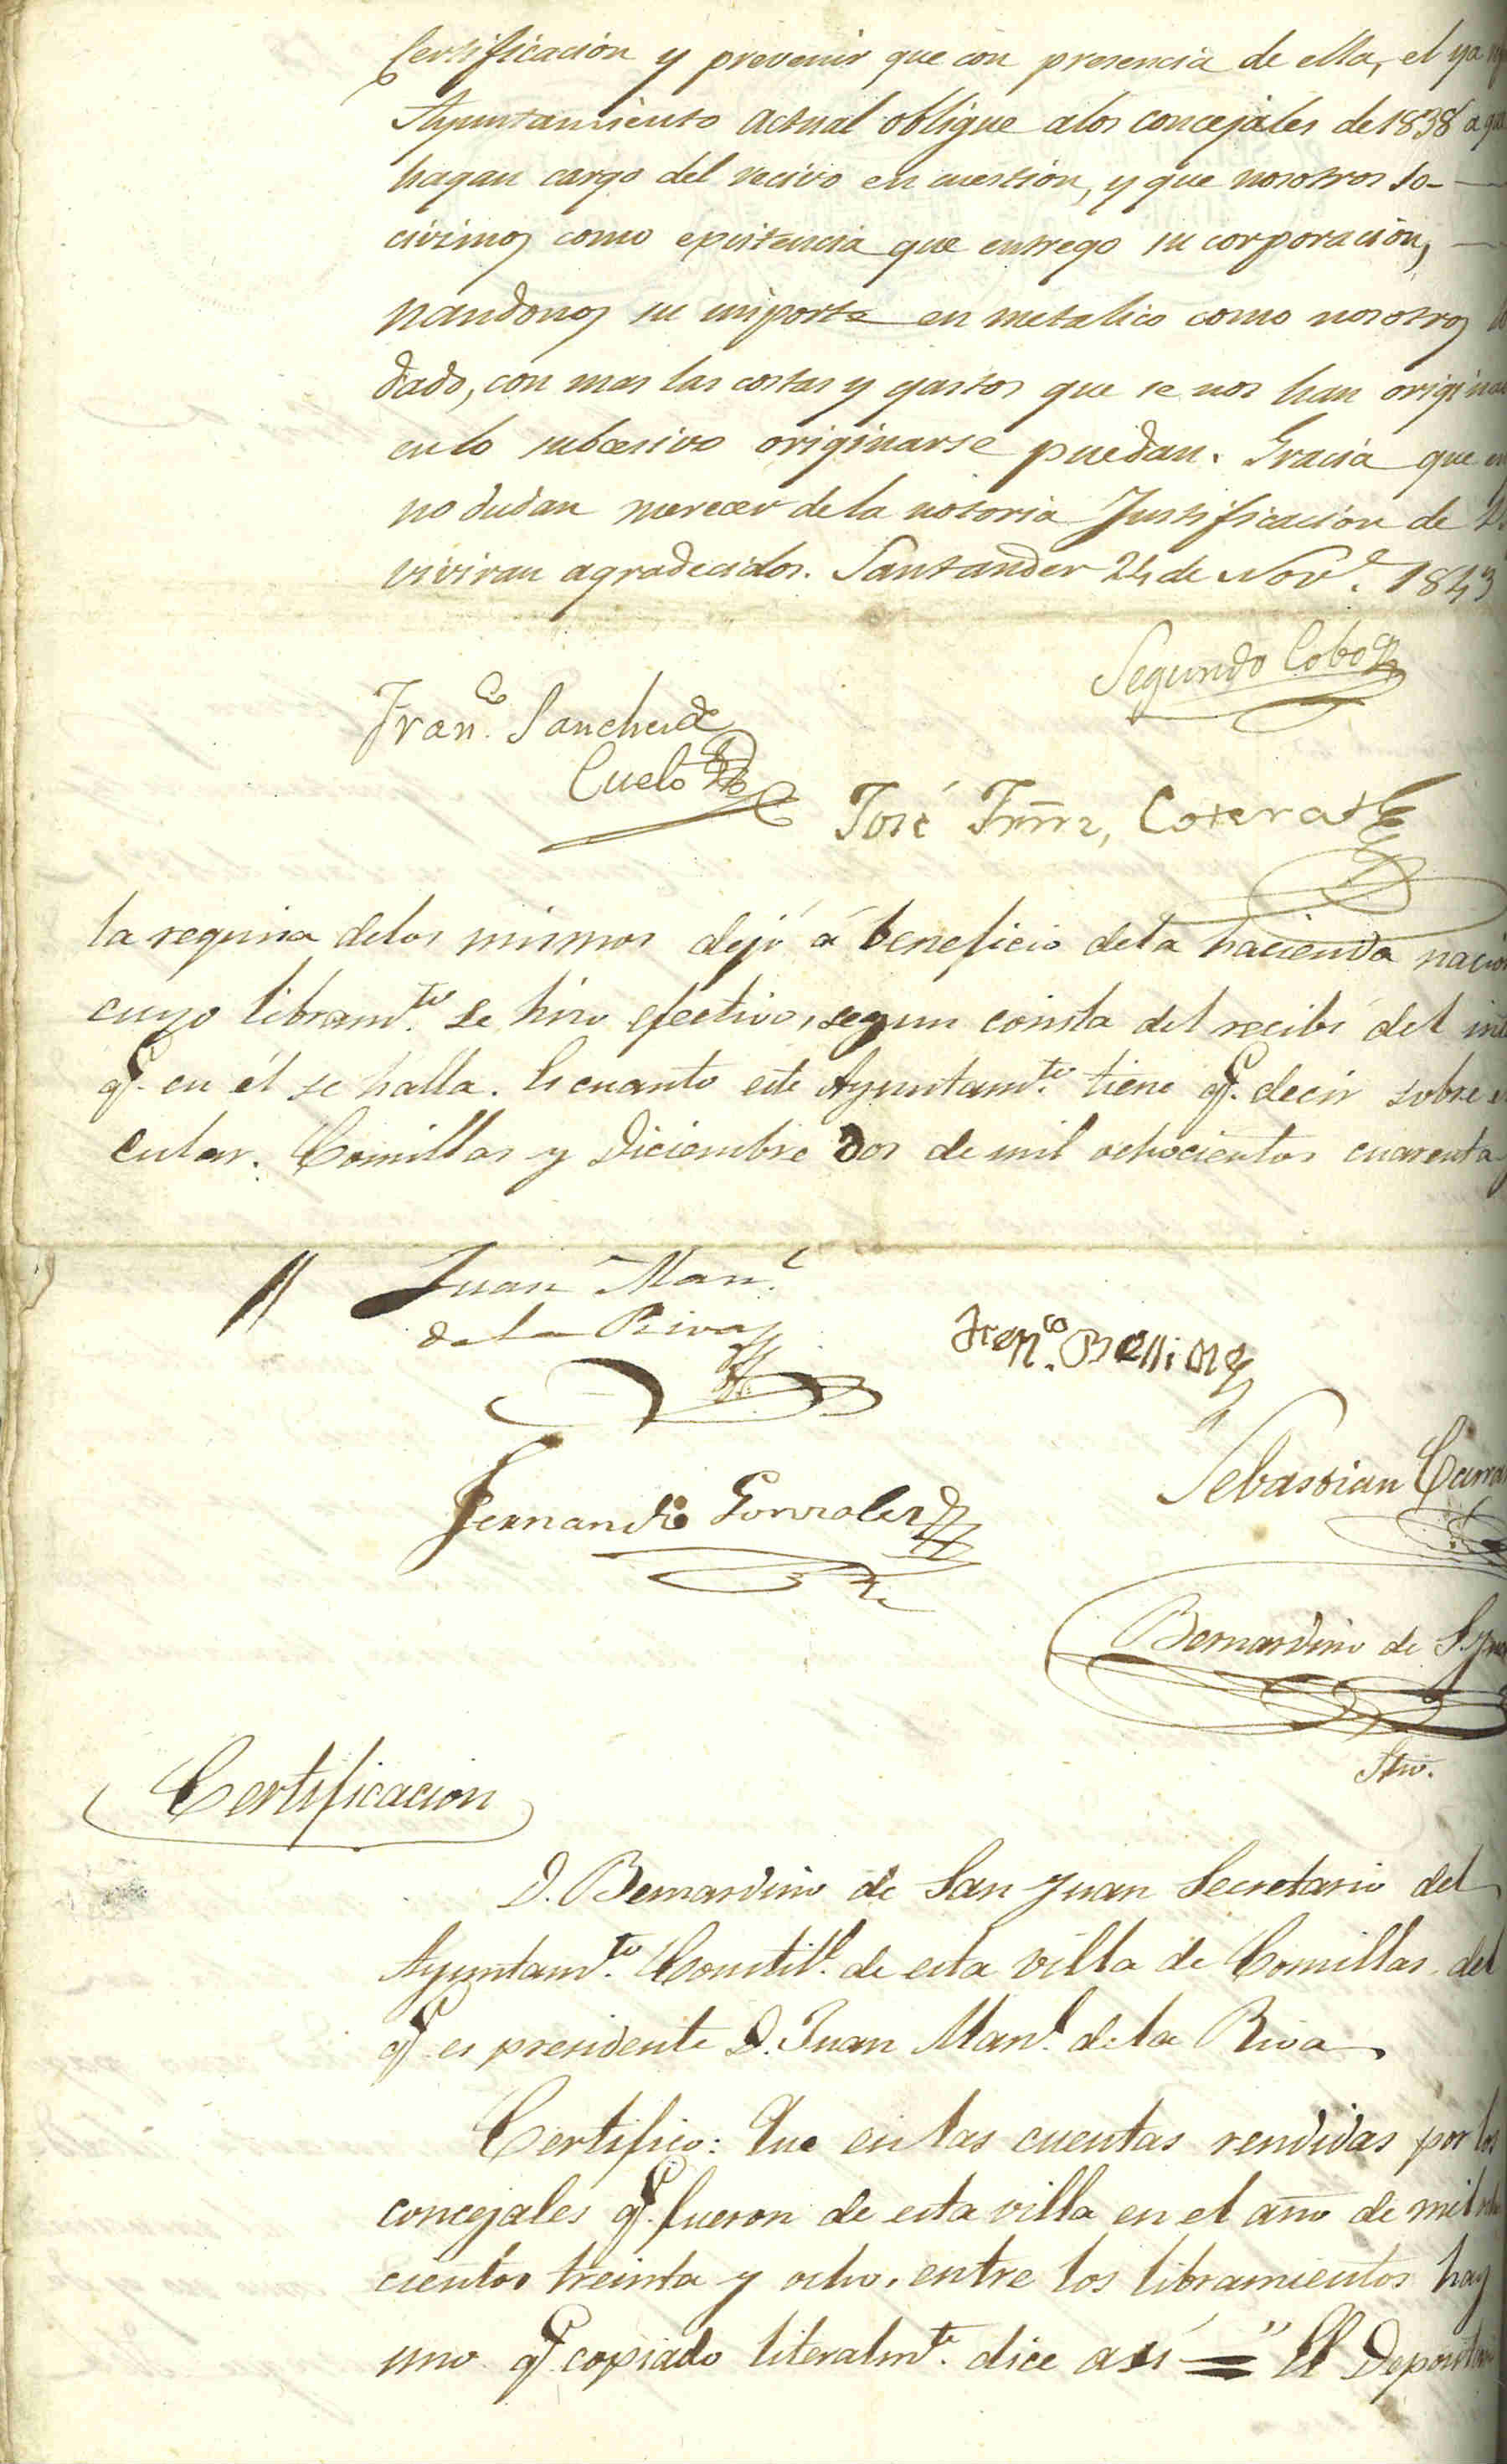 Certificación y prevenir que con presencia de ella, el ya
Ayuntamiento actual obligue alos concejales de 1838 a que
hagan cargo del recivo en cuestión, y que nosotros lo
civimos como existencia que entrego su corporación,
nandonos su importe en metalico como nosotros
dado, con mas las costas y gastos que se nos han origina
enlo subcesivo originarse puedan. Gracia que
no dudan merecer dela notoria Justificacion de
viviran agradecidos. Santander 24 de Nov.e 1843
Segundo Cobo
Fran.co Sanchez de
Cueto
José Frnz, Cotera
la requisa delos mismos dejó á beneficio dela hacienda nacio
cuyo libram.to se hizo efectivo, segun consta del recibí del
q.e en él se halla. Es cuanto este Ayuntam.to tiene q.e decir sobre
cular. Comillas y Diciembre dos de mil ochocientos cuarenta
Juan Man.l
dela Riva
Fran.co
Fernando Gonzalez
Sebastian
Bernardino de S.Jua
Srio.
Certificacion
D. Bernardino de San Juan Secretario del
Ayuntam.to Constit.l de esta villa de Comillas del
q.e es presidente D. Juan Man.l dela Riva
Certifico: Que en las cuentas rendidas por los
concejales q.e fueron de esta villa en el año de mil
cientos treinta y ocho, entre los libramientos hay
uno q.e copiado literalm.te dice así = "El Deposit